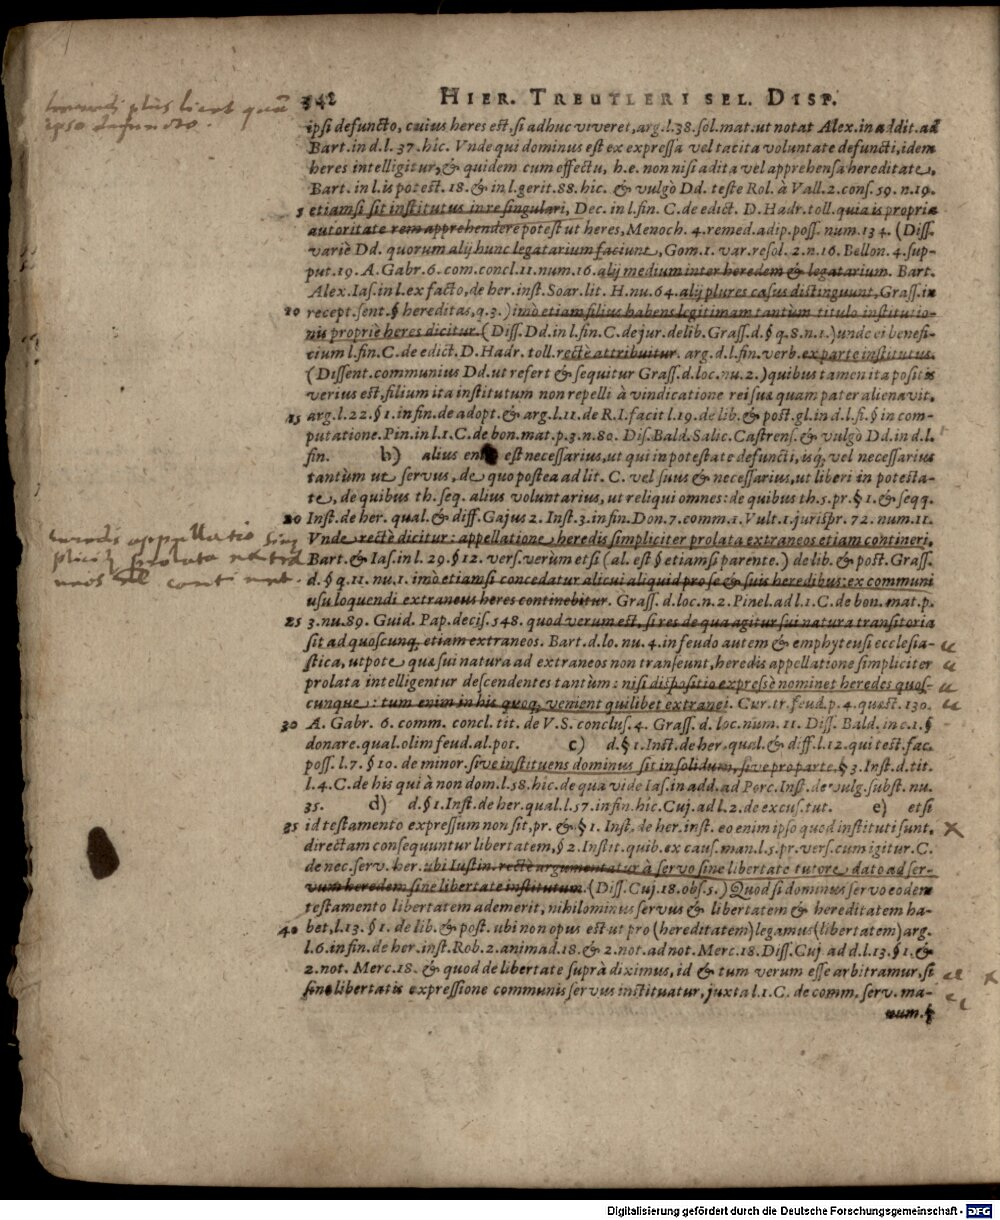 342 HIER. TREUTLERI SEL. DISP.
ipso defuncto.
ipsi defuncto, cuius heres est, si adhuc viveret, arg. l. 38. sol. mat. ut notat Alex. in addit. ad
Bart. in d. l. 37. hic. Vnde qui dominus est ex expressa vel tacita voluntate defuncti, idem
heres intelligitur, & quidem cum effectu, h.e. non nisi adita vel apprehensa hereditate,
Bart. in l. is potest. 18. & in l. gerit. 88. hic. & vulgò Dd. teste Rol. à Vall. 2. cons. 59. n. 19.
5 etiamsi sit institutus in re singulari, Dec. in l. fin. C. de edict. D. Hadr. toll. quia is propria
autoritate rem apprehendere potest ut heres, Menoch. 4. remed. adip. poss. num. 134. (Diss.
variè Dd. quorum alij hunc legatarium faciunt, Gom. 1. var. resol. 2. n. 16. Bellon. 4. sup-
put. 19. A. Gabr. 6. com. concl. 11. num. 16. alij medium inter heredem & legatarium. Bart.
Alex. Ias. in l. ex facto, de her. inst. Soar. lit. H. nu. 64. alij plures casus distinguunt, Grass. in
10 recept. sent. § hereditas, q. 3.) imò etiam filius habens legitimam tantùm titulo institutio-
nis propriè heres dicitur. (Diss. Dd. in l. fin. C. de jur. delib. Grass. d. § q. 8. n. 1.) unde ei benefi-
cium l. fin. C. de edict. D. Hadr. toll. rectè attribuitur. arg. d. l. fin. verb. ex parte institutus.
(Dissent. communius Dd. ut refert & sequitur Grass. d. loc. nu. 2.) quibus tamen ita positis
verius est, filium ita institutum non repelli à vindicatione rei suæ quam pater alienavit.
15 arg. l. 22. § 1. in fin. de adopt. & arg. l. 11. de R. I. facit l. 19. de lib. & post. gl. in d. l. fi. § in com-
putatione. Pin. in l. 1. C. de bon. mat. p. 3. n. 80. Dis. Bald. Salic. Castrens. & vulgò Dd. in d. l.
fin. b) alius est necessarius, ut qui in potestate defuncti, isq; vel necessarius
tantùm ut servus, de quo postea ad lit. C. vel suus & necessarius, ut liberi in potesta-
te, de quibus th. seq. alius voluntarius, ut reliqui omnes: de quibus th. 5. pr. § 1. & seqq.
20 Inst. de her. qual. & diff. Gajus 2. Inst. 3. in fin. Don. 7. comm. 1. Vult. 1. jurispr. 72. num. 11.
heredis appellatio
Vnde rectè dicitur: appellatione heredis simpliciter prolata extraneos etiam contineri,
Bart. & Ias. in l. 29. § 12. vers. verùm etsi (al. est § etiamsi parente.) de lib. & post. Grass.
d. § q. 11. nu. 1. imò etiamsi concedatur alicui aliquid pro se & suis heredibus: ex communi
usu loquendi extraneus heres continebitur. Grass. d. loc. n. 2. Pinel. ad l. 1. C. de bon. mat. p.
25 3. nu. 89. Guid. Pap. decis. 548. quod verum est, si res de qua agitur sui natura transitoria
sit ad quoscunq; etiam extraneos. Bart. d. lo. nu. 4. in feudo autem & emphyteusi ecclesia-
stica, utpote quæ sui natura ad extraneos non transeunt, heredis appellatione simpliciter
prolata intelligentur descendentes tantùm: nisi dispositio expressè nominet heredes quos-
cunque: tum enim in his quoq; venient quilibet extranei. Cur. tr. feud. p. 4. quæst. 130.
30 A. Gabr. 6. comm. concl. tit. de V. S. conclus. 4. Grass. d. loc. num. 11. Diss. Bald. in c. 1. §
donare. qual. olim feud. al. pot. c) d. § 1. Inst. de her. qual. & diff. l. 12. qui test. fac.
poss. l. 7. § 10. de minor. sive instituens dominus sit in solidum, sive pro parte, § 3. Inst. d. tit.
l. 4. C. de his qui à non dom. l. 58. hic. de qua vide Ias. in add. ad Porc. Inst. de vulg. subst. nu.
35. d) d. § 1. Inst. de her. qual. l. 57. in fin. hic. Cuj. ad l. 2. de excus. tut. e) etsi
35 id testamento expressum non sit, pr. & § 1. Inst. de her. inst. eo enim ipso quod instituti sunt,
directam consequuntur libertatem, § 2. Instit. quib. ex caus. man. l. 5. pr. vers. cum igitur. C.
de nec. serv. her. ubi Iustin. rectè argumentatur à servo sine libertate tutore dato ad ser-
vum heredem sine libertate institutum. (Diss. Cuj. 18. obs. 5.) Quod si dominus servo eodem
testamento libertatem ademerit, nihilominus servus & libertatem & hereditatem ha-
40 bet, l. 13. § 1. de lib. & post. ubi non opus est ut pro (hereditatem) legamus (libertatem) arg.
l. 6. in fin. de her. inst. Rob. 2. animad. 18. & 2. not. ad not. Merc. 18. Diss. Cuj. ad d. l. 13. § 1. &
2. not. Merc. 18. & quod de libertate suprà diximus, id & tum verum esse arbitramur, si
sine libertatis expressione communis servus instituatur, juxta l. 1. C. de comm. serv. ma-
num. §
Digitalisierung gefördert durch die Deutsche Forschungsgemeinschaft - DFG